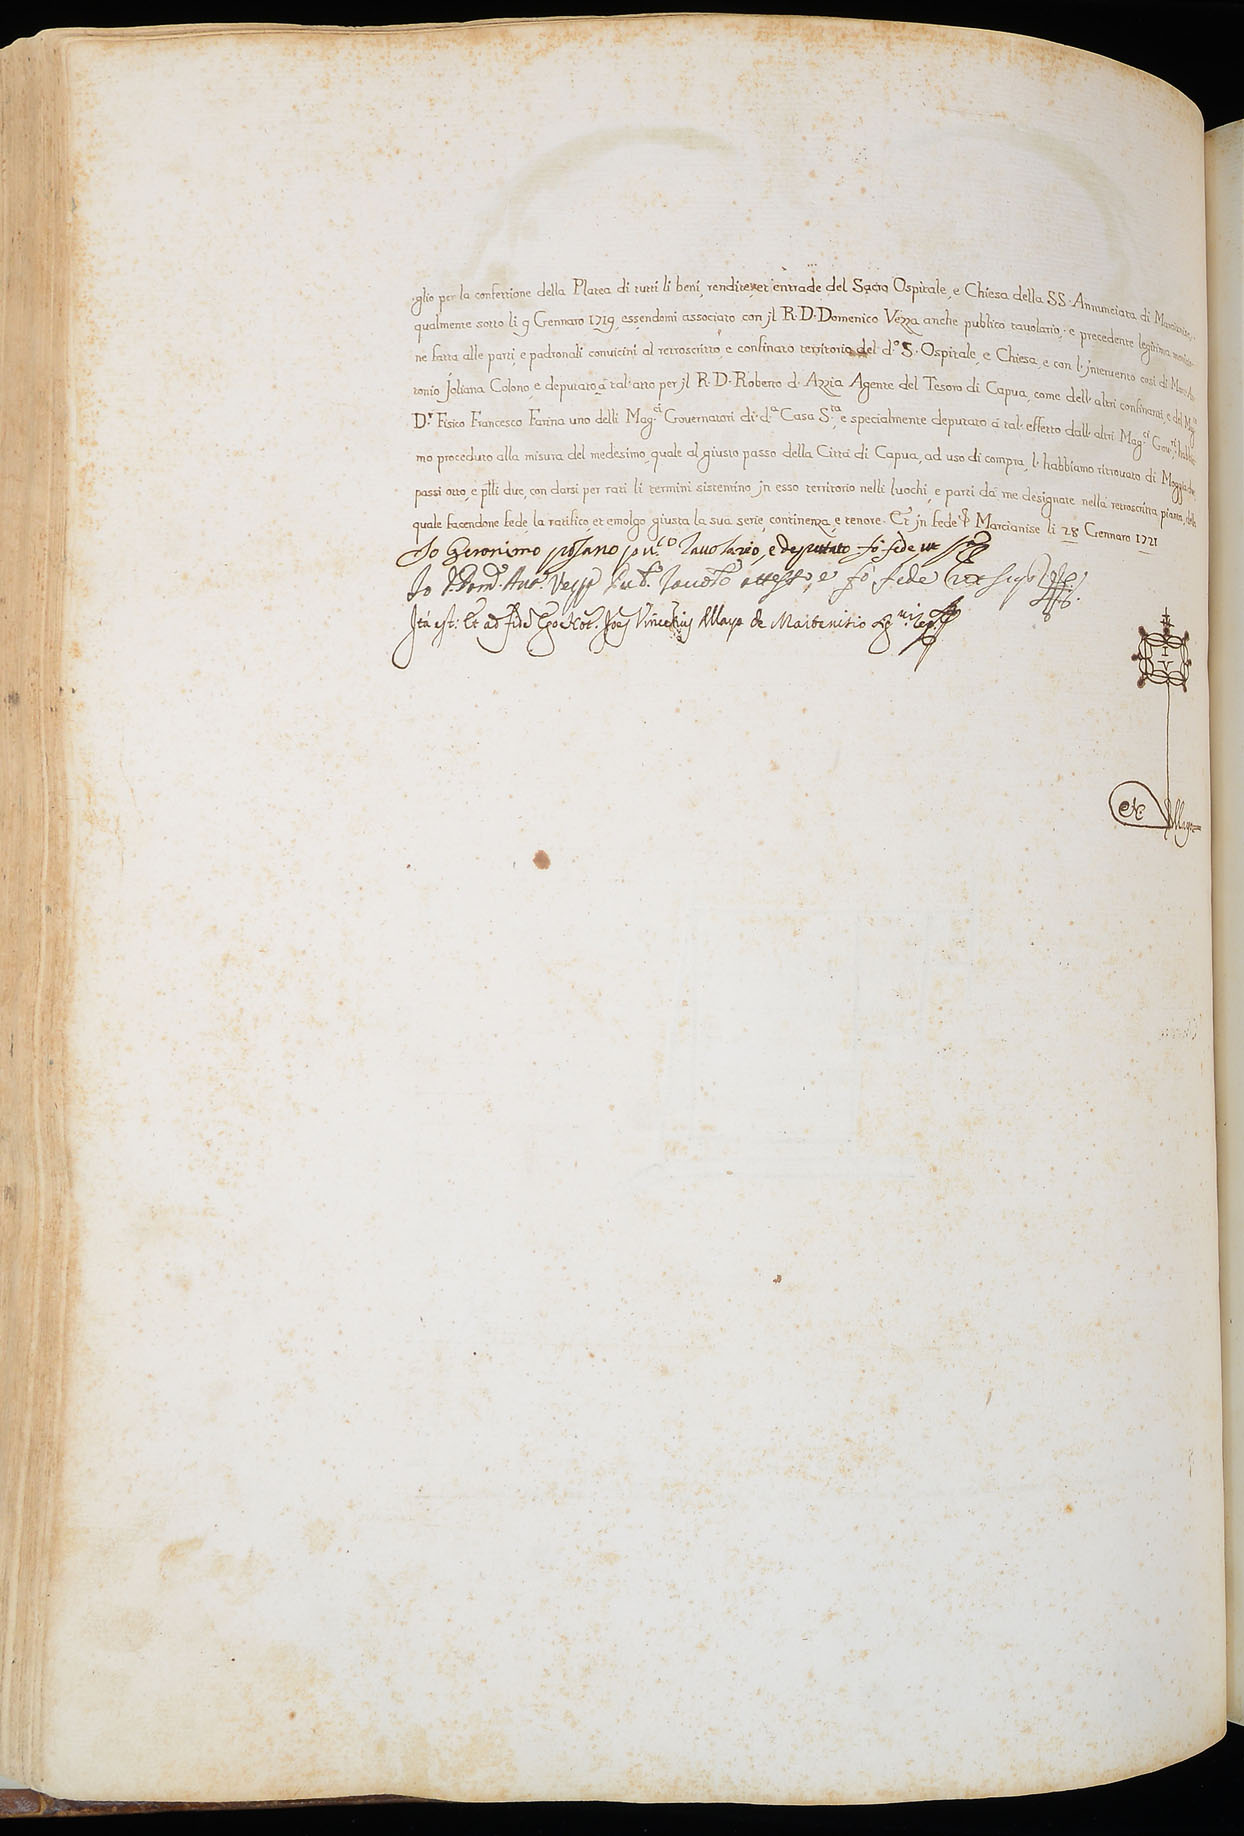 glio per la confettione della Platea di tutti li beni, rendite, et entrade del Sacro Ospitale, e Chiesa della SS. Annunciata di Marcianise,
qualmente sotto li 9 Gennaro 1719, essendomi associato con jl R. D. Domenico Vezza anche publico tavolario, e precedente legitima monitio-
ne fatta alle parti, e padronali convicini al retroscritto, e confinato territorio del d.º S. Ospitale, e Chiesa, e con l' jntervento così di Marc'An-
tonio Joliana Colono, e deputato à tal' atto per jl R. D. Roberto d' Azzia Agente del Tesoro di Capua, come dell' altri confinanti, e del Mag.co
D.r Fisico Francesco Farina uno delli Mag.ci Governatori di d.a Casa S.ta, e specialmente deputato à tal' effetto dall' altri Mag.ci Gov.ri, habbia-
mo proceduto alla misura del medesimo, quale al giusto passo della Città di Capua, ad uso di compra, l' habbiamo ritrovato di Moggia
passi otto, e p.lli due, con darsi per rati li termini sistentino jn esso territorio nelli luochi, e parti da me designate nella retroscritta pianta, della
quale facendone fede, la ratifico et emolgo giusta la sua serie, continenza, e tenore. Et jn fede &c. Marcianise li 28 Gennaro 1721
Io Geronimo pu.co Tavolario, e deputato fò fede ut s.a
Io D. Dom.co Ant.o Vezza Pub.o Tavol.o attesto, e fò fede ut sup.a
Ita est: Et ad fidem Ego Not. Joes Vincentius Allaya de Martenisio
N.
Allaya